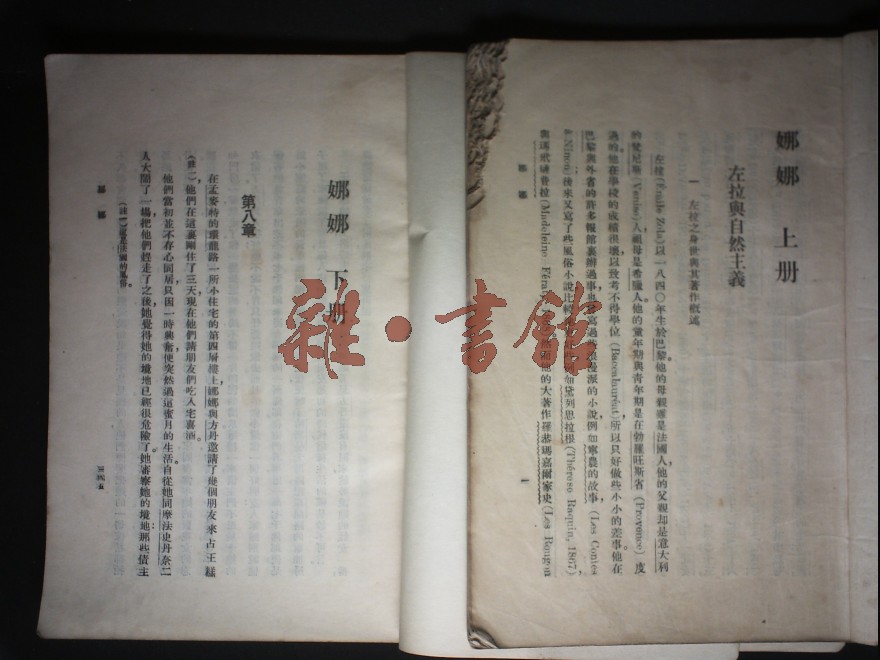 娜娜 上册
左拉與自然主義
一 左拉之身世與其著作概述
左拉(Emile Zola)以一八四〇年生於巴黎。他的母親雖是法國人,他的父親却是意大利
的梵尼斯(Venise)人,祖母是希臘人。他的童年期與青年期是在勃羅旺斯省(Provence)度
過的。他在學校的成績很壞,以致考不得學位(Baccalauréat),所以只好做些小小的差事。他在
巴黎與外省的許多報館裏辦過事,也寫過些浪漫派的小說,例如寧農的故事(Les Contes
à Ninon)後來又寫了些風俗小說,比較 如黛列思拉根(Thérèse Raquin, 1867)
與瑪戴蘭 (Madeleine Féra 他的大著作羅恭瑪嘉爾家史(Les Rougon
娜娜
一
娜娜 下册
第八章
在孟麥特的環龍路一所小住宅的第四層樓上,娜娜與方丹邀請了幾個朋友來占王糕
(註一)他們在這裏剛住了三天,現在他們請朋友們吃入宅喜酒。
他們當初並不存心同居,只因一時興奮,便突然過這蜜月的生活。自從她同摩法史丹奈二
人大鬧了一場,把他們趕走了之後,她覺得她的境地已經很危險了。她審察她的境地:那些債主
(註一)這是法國的風俗。
娜娜
三四五
雜·書館